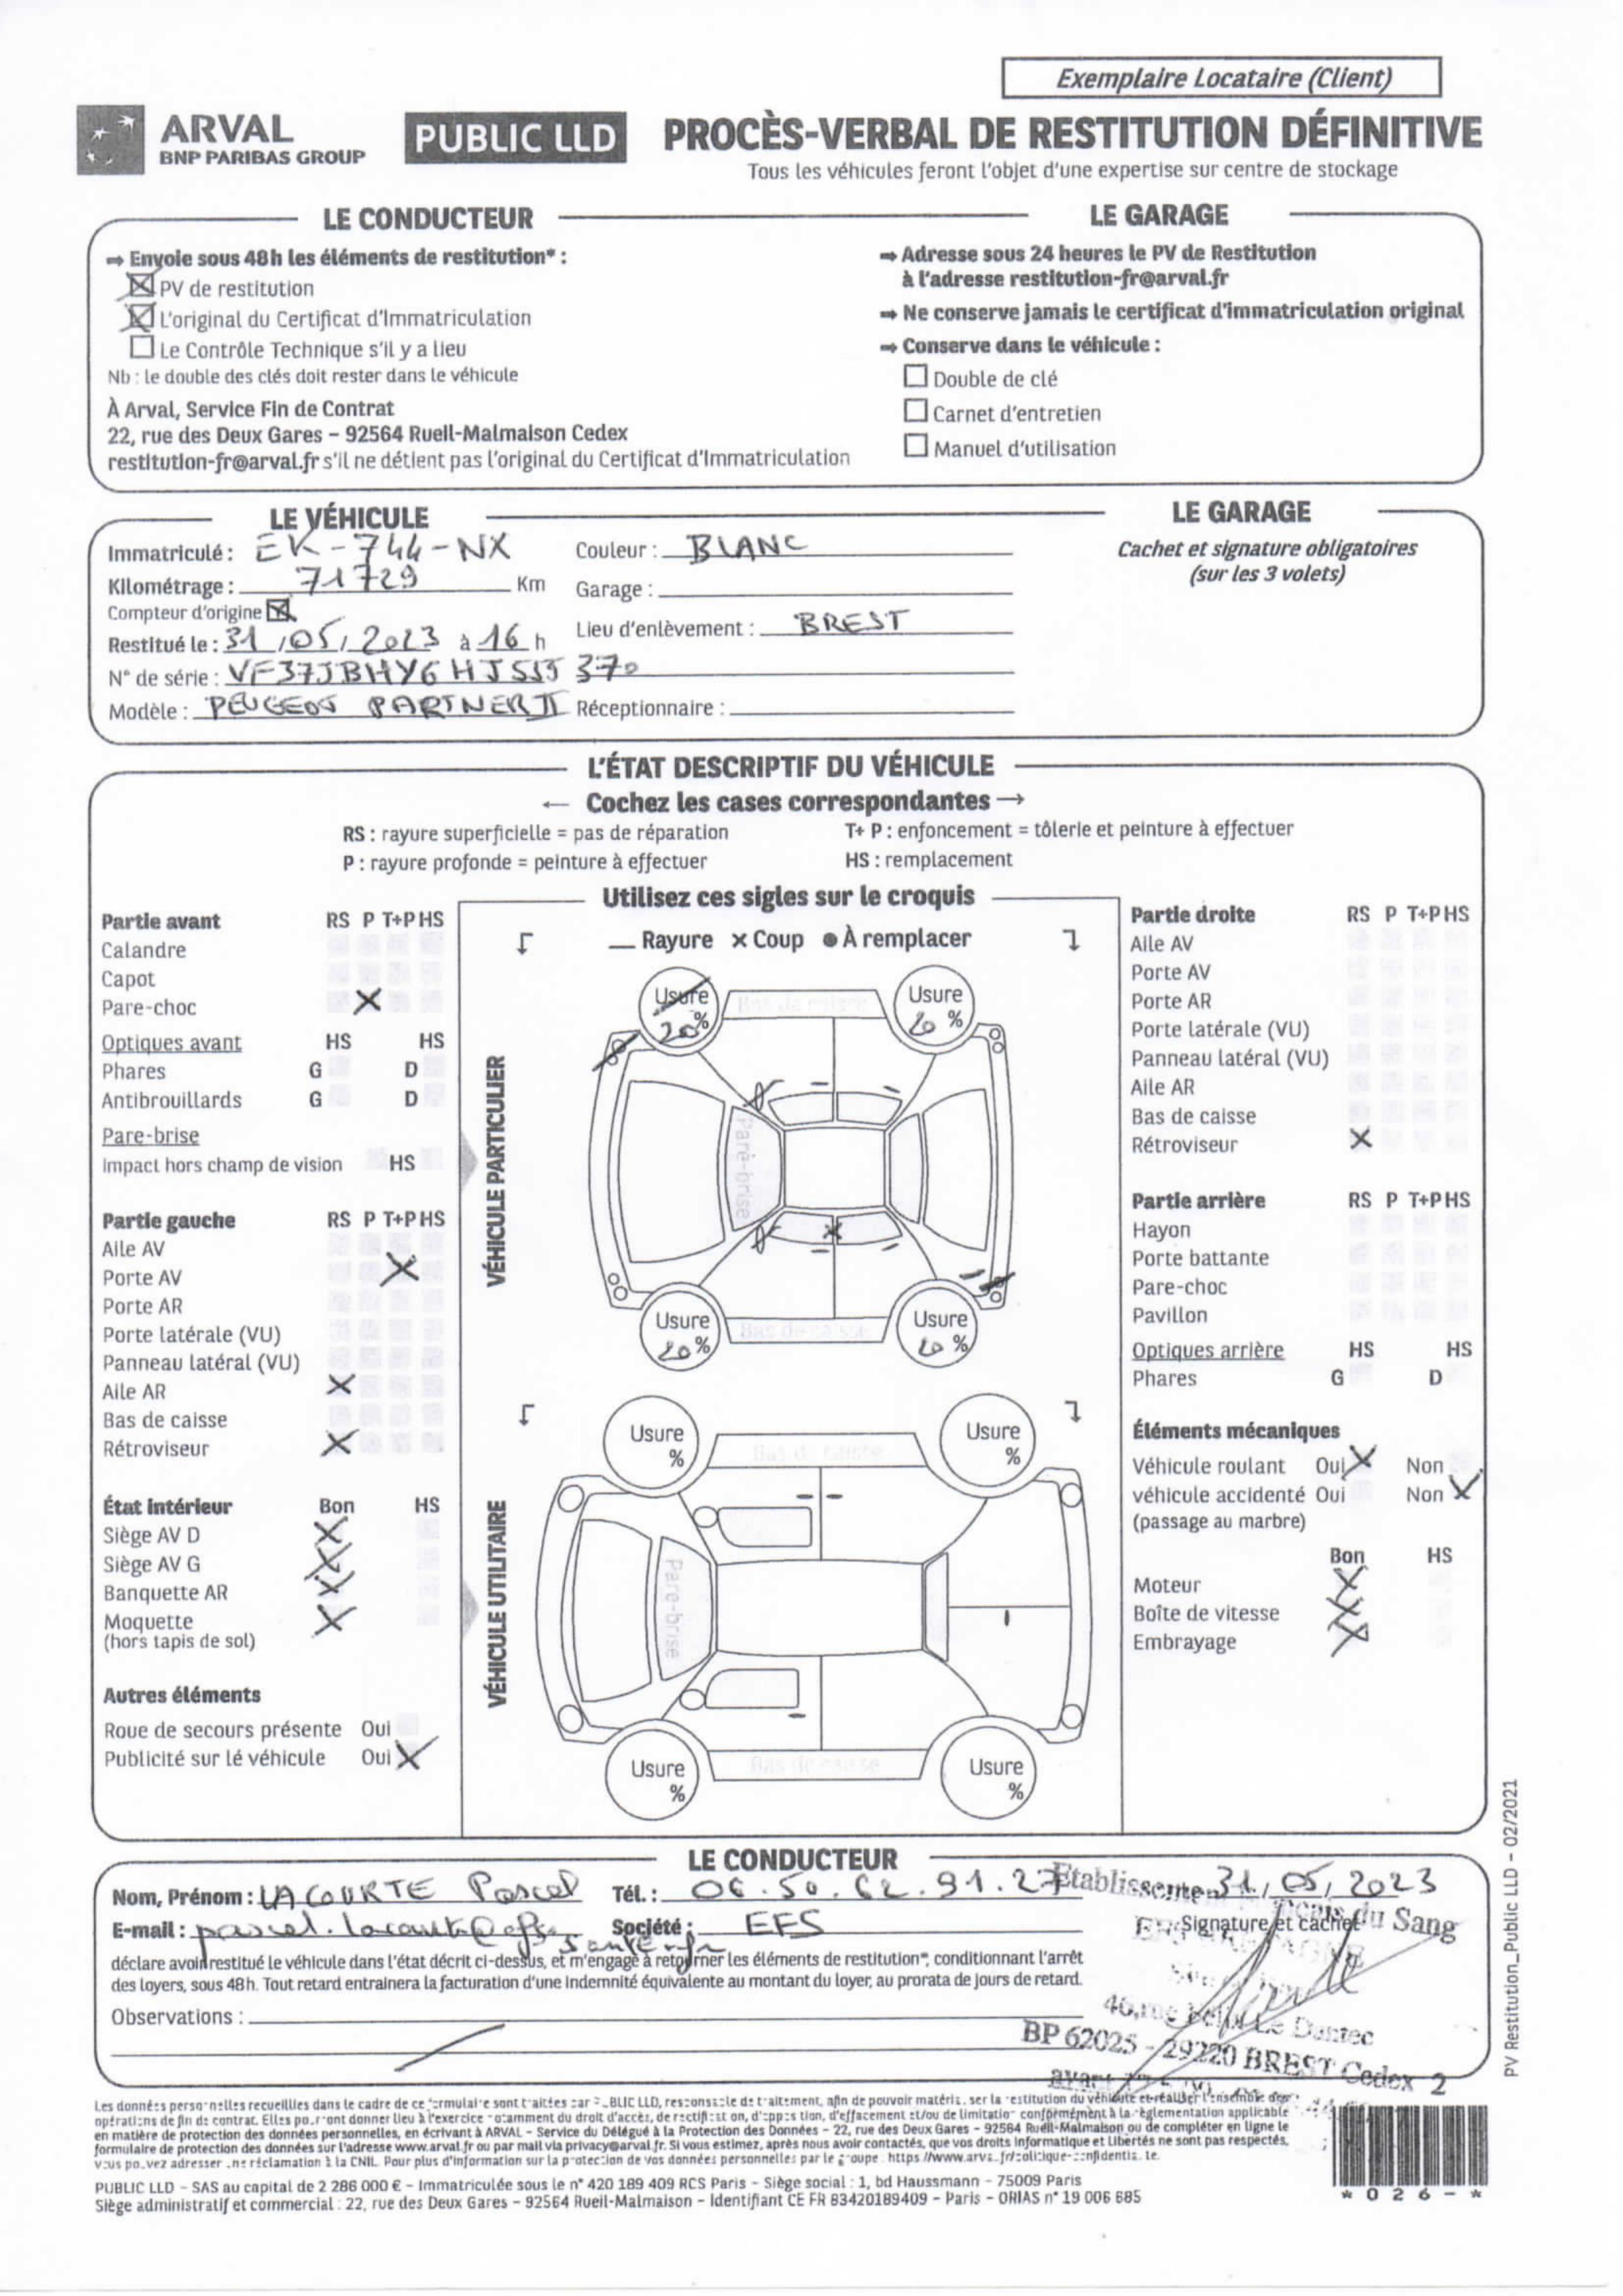 Exemplaire Locataire (Client)
ARVAL
BNP PARIBAS GROUP
PUBLIC LLD
PROCÈS-VERBAL DE RESTITUTION DÉFINITIVE
Tous les véhicules feront l'objet d'une expertise sur centre de stockage
LE CONDUCTEUR
⇒ Envoie sous 48h les éléments de restitution* :
☒ PV de restitution
☒ L'original du Certificat d'Immatriculation
☐ Le Contrôle Technique s'il y a lieu
Nb : le double des clés doit rester dans le véhicule
À Arval, Service Fin de Contrat
22, rue des Deux Gares – 92564 Rueil-Malmaison Cedex
restitution-fr@arval.fr s'il ne détient pas l'original du Certificat d'Immatriculation
LE GARAGE
⇒ Adresse sous 24 heures le PV de Restitution
à l'adresse restitution-fr@arval.fr
⇒ Ne conserve jamais le certificat d'immatriculation original
⇒ Conserve dans le véhicule :
☐ Double de clé
☐ Carnet d'entretien
☐ Manuel d'utilisation
LE VÉHICULE
Immatriculé : EK-744-NX
Kilométrage : 71729 Km
Compteur d'origine ☒
Restitué le : 31/05/2023 à 16 h
N° de série :
Modèle : PEUGEOT PARTNER II
Couleur : BLANC
Garage :
Lieu d'enlèvement : BREST
Réceptionnaire :
LE GARAGE
Cachet et signature obligatoires
(sur les 3 volets)
L'ÉTAT DESCRIPTIF DU VÉHICULE
← Cochez les cases correspondantes →
RS : rayure superficielle = pas de réparation
T+ P : enfoncement = tôlerie et peinture à effectuer
P : rayure profonde = peinture à effectuer
HS : remplacement
Partie avant RS P T+P HS
Calandre
Capot
Pare-choc X
Optiques avant HS HS
Phares G D
Antibrouillards G D
Pare-brise
Impact hors champ de vision HS
Partie gauche RS P T+P HS
Aile AV
Porte AV X
Porte AR
Porte latérale (VU)
Panneau latéral (VU)
Aile AR X
Bas de caisse
Rétroviseur X
État intérieur Bon HS
Siège AV D X
Siège AV G X
Banquette AR X
Moquette X
(hors tapis de sol)
Autres éléments
Roue de secours présente Oui
Publicité sur lé véhicule Oui X
Utilisez ces sigles sur le croquis
— Rayure × Coup ● À remplacer
VÉHICULE PARTICULIER
Usure
20%
Bas de caisse
Usure
20 %
Pare-brise
Usure
20%
Bas de caisse
Usure
20 %
VÉHICULE UTILITAIRE
Usure
%
Bas de caisse
Usure
%
Pare-brise
Usure
%
Bas de caisse
Usure
%
Partie droite RS P T+P HS
Aile AV
Porte AV
Porte AR
Porte latérale (VU)
Panneau latéral (VU)
Aile AR
Bas de caisse
Rétroviseur X
Partie arrière RS P T+P HS
Hayon
Porte battante
Pare-choc
Pavillon
Optiques arrière HS HS
Phares G D
Éléments mécaniques
Véhicule roulant Oui X Non
véhicule accidenté Oui Non X
(passage au marbre)
Bon HS
Moteur X
Boîte de vitesse X
Embrayage X
LE CONDUCTEUR
Nom, Prénom : LACOURTE Pascal Tél. : 06.50.62.91.27 31/05/2023
E-mail : pascal.lacourte@efs.sante.fr Société : EFS
Signature et cachet
Etablissement Français du Sang
EFS BRETAGNE
46, rue Félix Le Dantec
BP 62025 - 29220 BREST Cedex 2
déclare avoir restitué le véhicule dans l'état décrit ci-dessus, et m'engage à retourner les éléments de restitution*, conditionnant l'arrêt
des loyers, sous 48h. Tout retard entrainera la facturation d'une indemnité équivalente au montant du loyer, au prorata de jours de retard.
Observations :
Les données personnelles recueillies dans le cadre de ce formulaire sont traitées par PUBLIC LLD, responsable de traitement, afin de pouvoir matérialiser la restitution du véhicule et réaliser l'ensemble des
opérations de fin de contrat. Elles pourront donner lieu à l'exercice notamment du droit d'accès, de rectification, d'opposition, d'effacement et/ou de limitation conformément à la réglementation applicable
en matière de protection des données personnelles, en écrivant à ARVAL – Service du Délégué à la Protection des Données – 22, rue des Deux Gares – 92564 Rueil-Malmaison ou de compléter en ligne le
formulaire de protection des données sur l'adresse www.arval.fr ou par mail via privacy@arval.fr. Si vous estimez, après nous avoir contactés, que vos droits Informatique et Libertés ne sont pas respectés,
vous pouvez adresser une réclamation à la CNIL. Pour plus d'information sur la protection de vos données personnelles par le groupe :
PUBLIC LLD – SAS au capital de 2 286 000 € – Immatriculée sous le n° 420 189 409 RCS Paris – Siège social : 1, bd Haussmann – 75009 Paris
Siège administratif et commercial : 22, rue des Deux Gares – 92564 Rueil-Malmaison – Identifiant CE FR 83420189409 – Paris – ORIAS n° 19 006 685
* 0 2 6 – *
PV Restitution_Public LLD – 02/2021